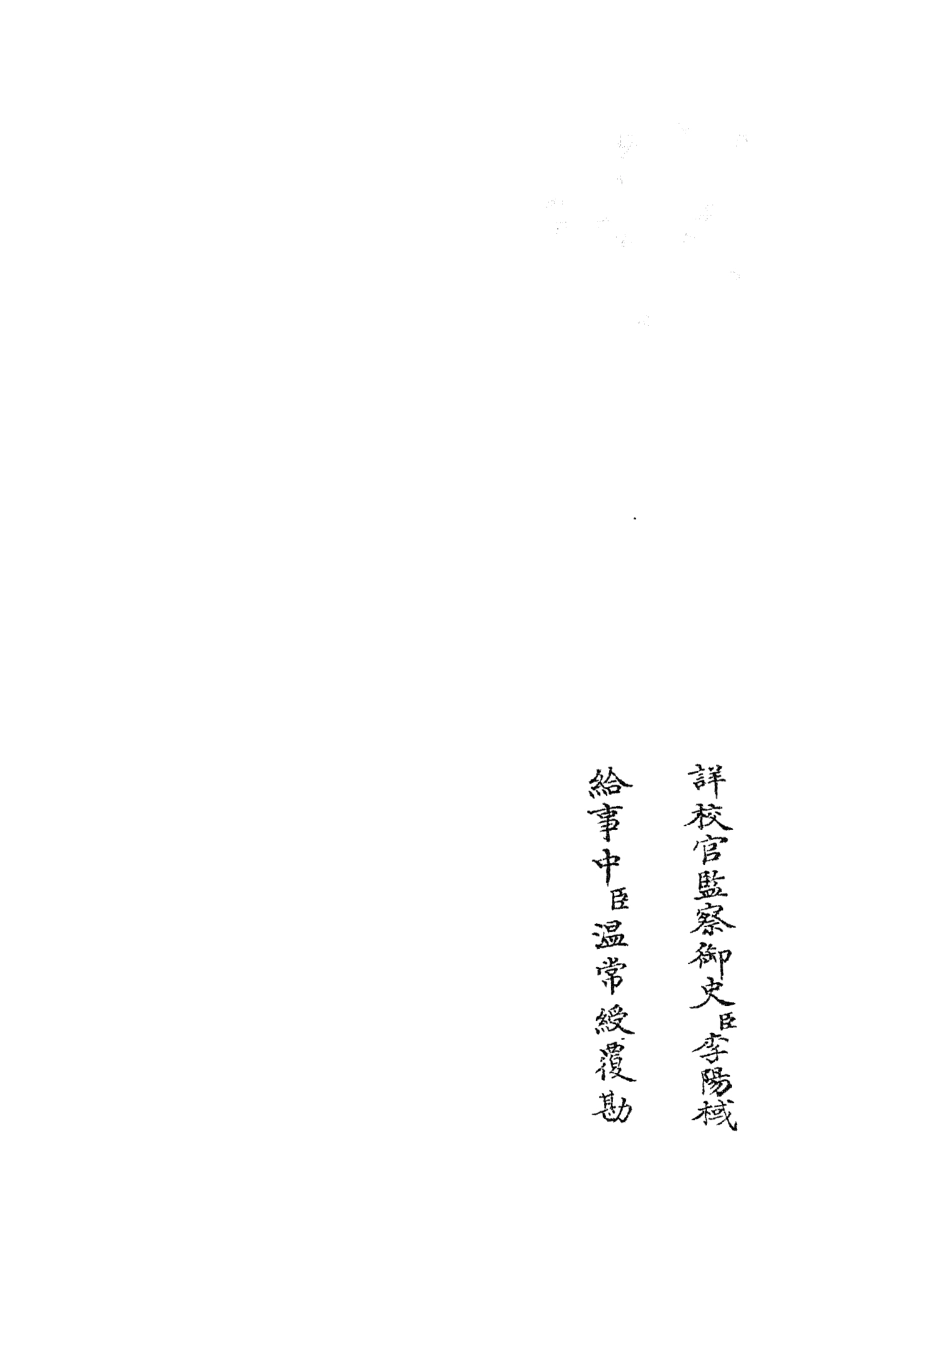 詳校官監察御史臣李陽棫
給事中臣温常綬覆勘